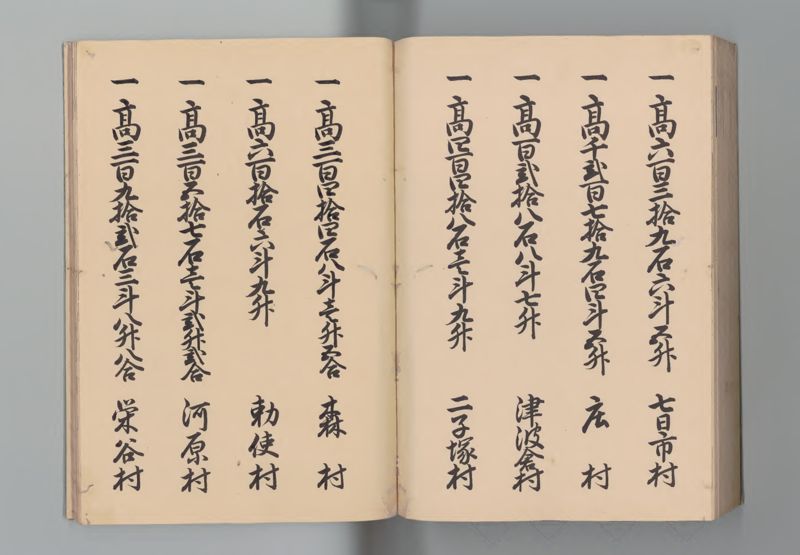 一 高六百三拾九石六斗五升 七日市村
一 高千弐百七拾九石四斗五升 広村
一 高百弐拾八石八斗七升 津波倉村
一 高四百四拾八石壱斗九升 二子塚村
一 高三百四拾四石八斗壱升五合 森村
一 高六百拾石六斗九升 勅使村
一 高三百五拾七石壱斗弐升弐合 河原村
一 高三百九拾弐石三斗八升八合 栄谷村